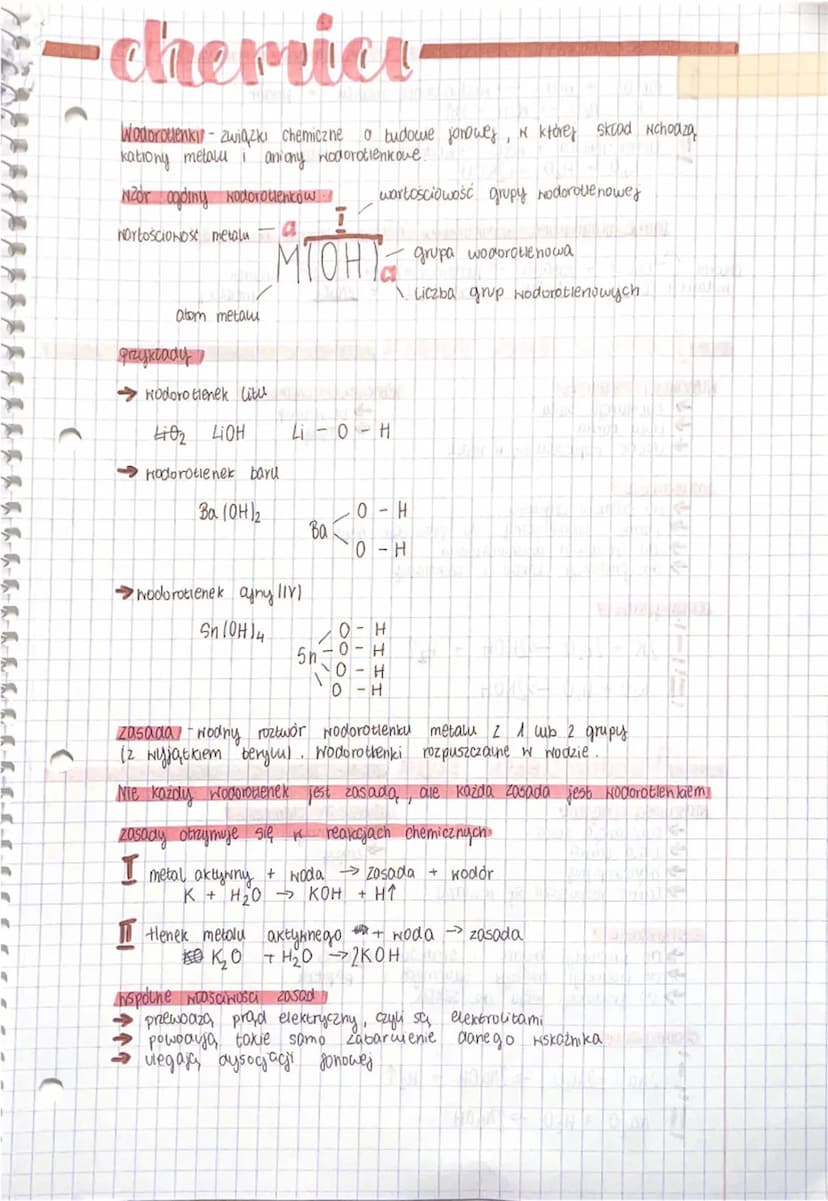 chemia
Wodorotlenki - związki chemiczne o budowie jonowej, w której skład wchodzą
kationy metalu i aniony wodorotlenkowe
wzór ogólny wodorotlenków
wartościowość grupy wodorotlenowej
wartościowość metalu - a I
M(OH)a
grupa wodorotlenowa
liczba grup wodorotlenowych
atom metalu
przykłady
→ wodorotlenek litu
LiO2 LiOH Li - O - H
→ wodorotlenek baru
Ba(OH)2
O - H
Ba
O - H
→ wodorotlenek cyny(IV)
Sn(OH)4
O - H
Sn - O - H
O - H
O - H
zasada - wodny roztwór wodorotlenku metalu z 1 lub 2 grupy
(z wyjątkiem berylu). Wodorotlenki rozpuszczalne w wodzie.
Nie każdy wodorotlenek jest zasadą, ale każda zasada jest wodorotlenkiem
zasady otrzymuje się w reakcjach chemicznych
I metal aktywny + woda → zasada + wodór
K + H2O → KOH + H↑
II tlenek metalu aktywnego + woda → zasada
K2O + H2O → 2KOH
wspólne właściwości zasad
→ przewodzą prąd elektryczny, czyli są elektrolitami
→ powodują takie samo zabarwienie danego wskaźnika
→ ulegają dysocjacji jonowej